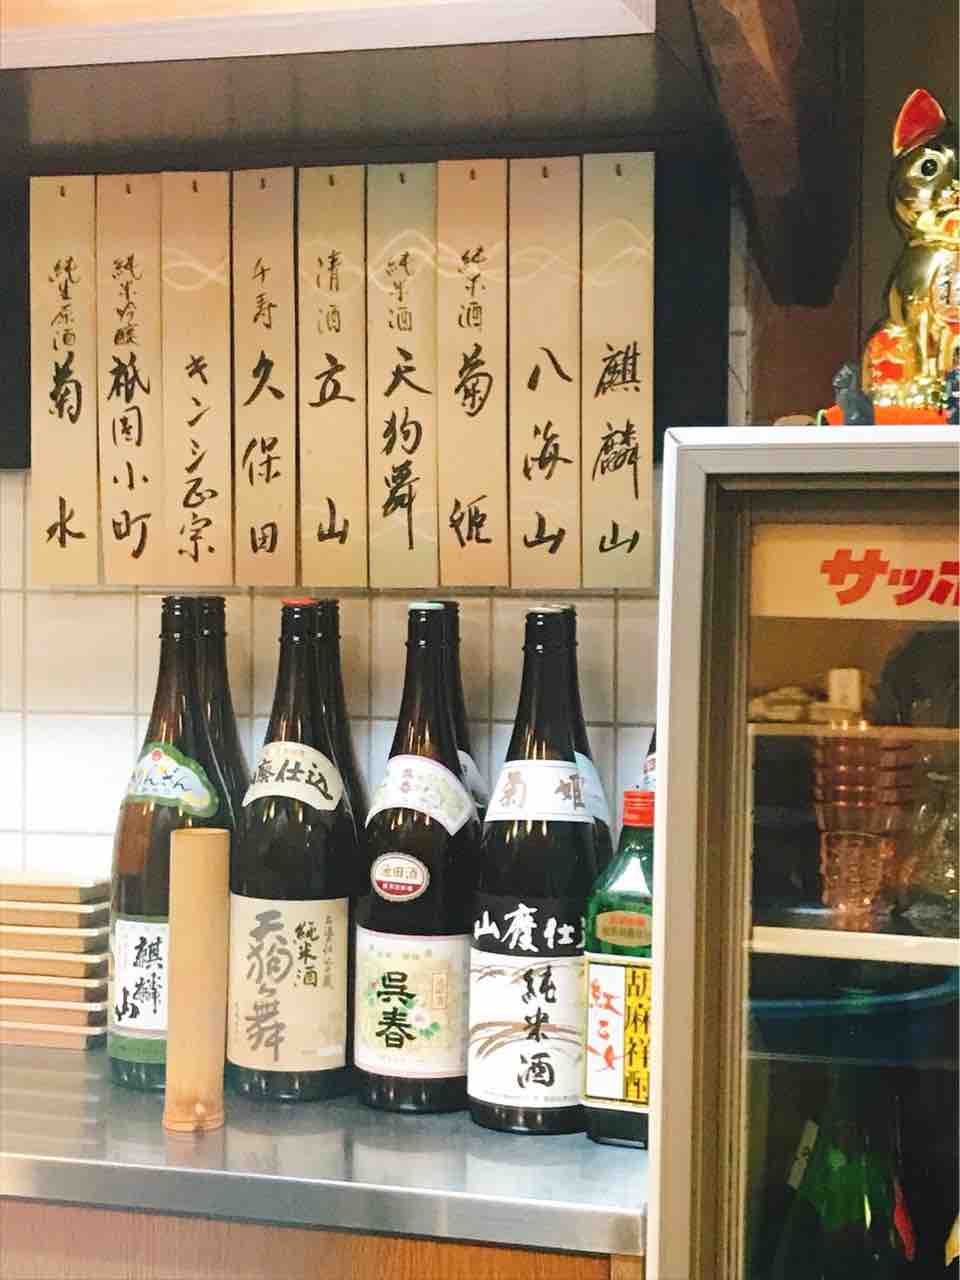 麒麟山
八海山
純米酒 菊姫
純米酒 天狗舞
清酒 立山
千寿 久保田
キンシ正宗
純米吟醸 祇園小町
純生原酒 菊水
サッポ
りんざん
麒麟山
廃仕込
純米酒
天狗舞
池田酒
呉春
菊姫
山廃仕込
純米酒
胡麻祥酎
紅乙女